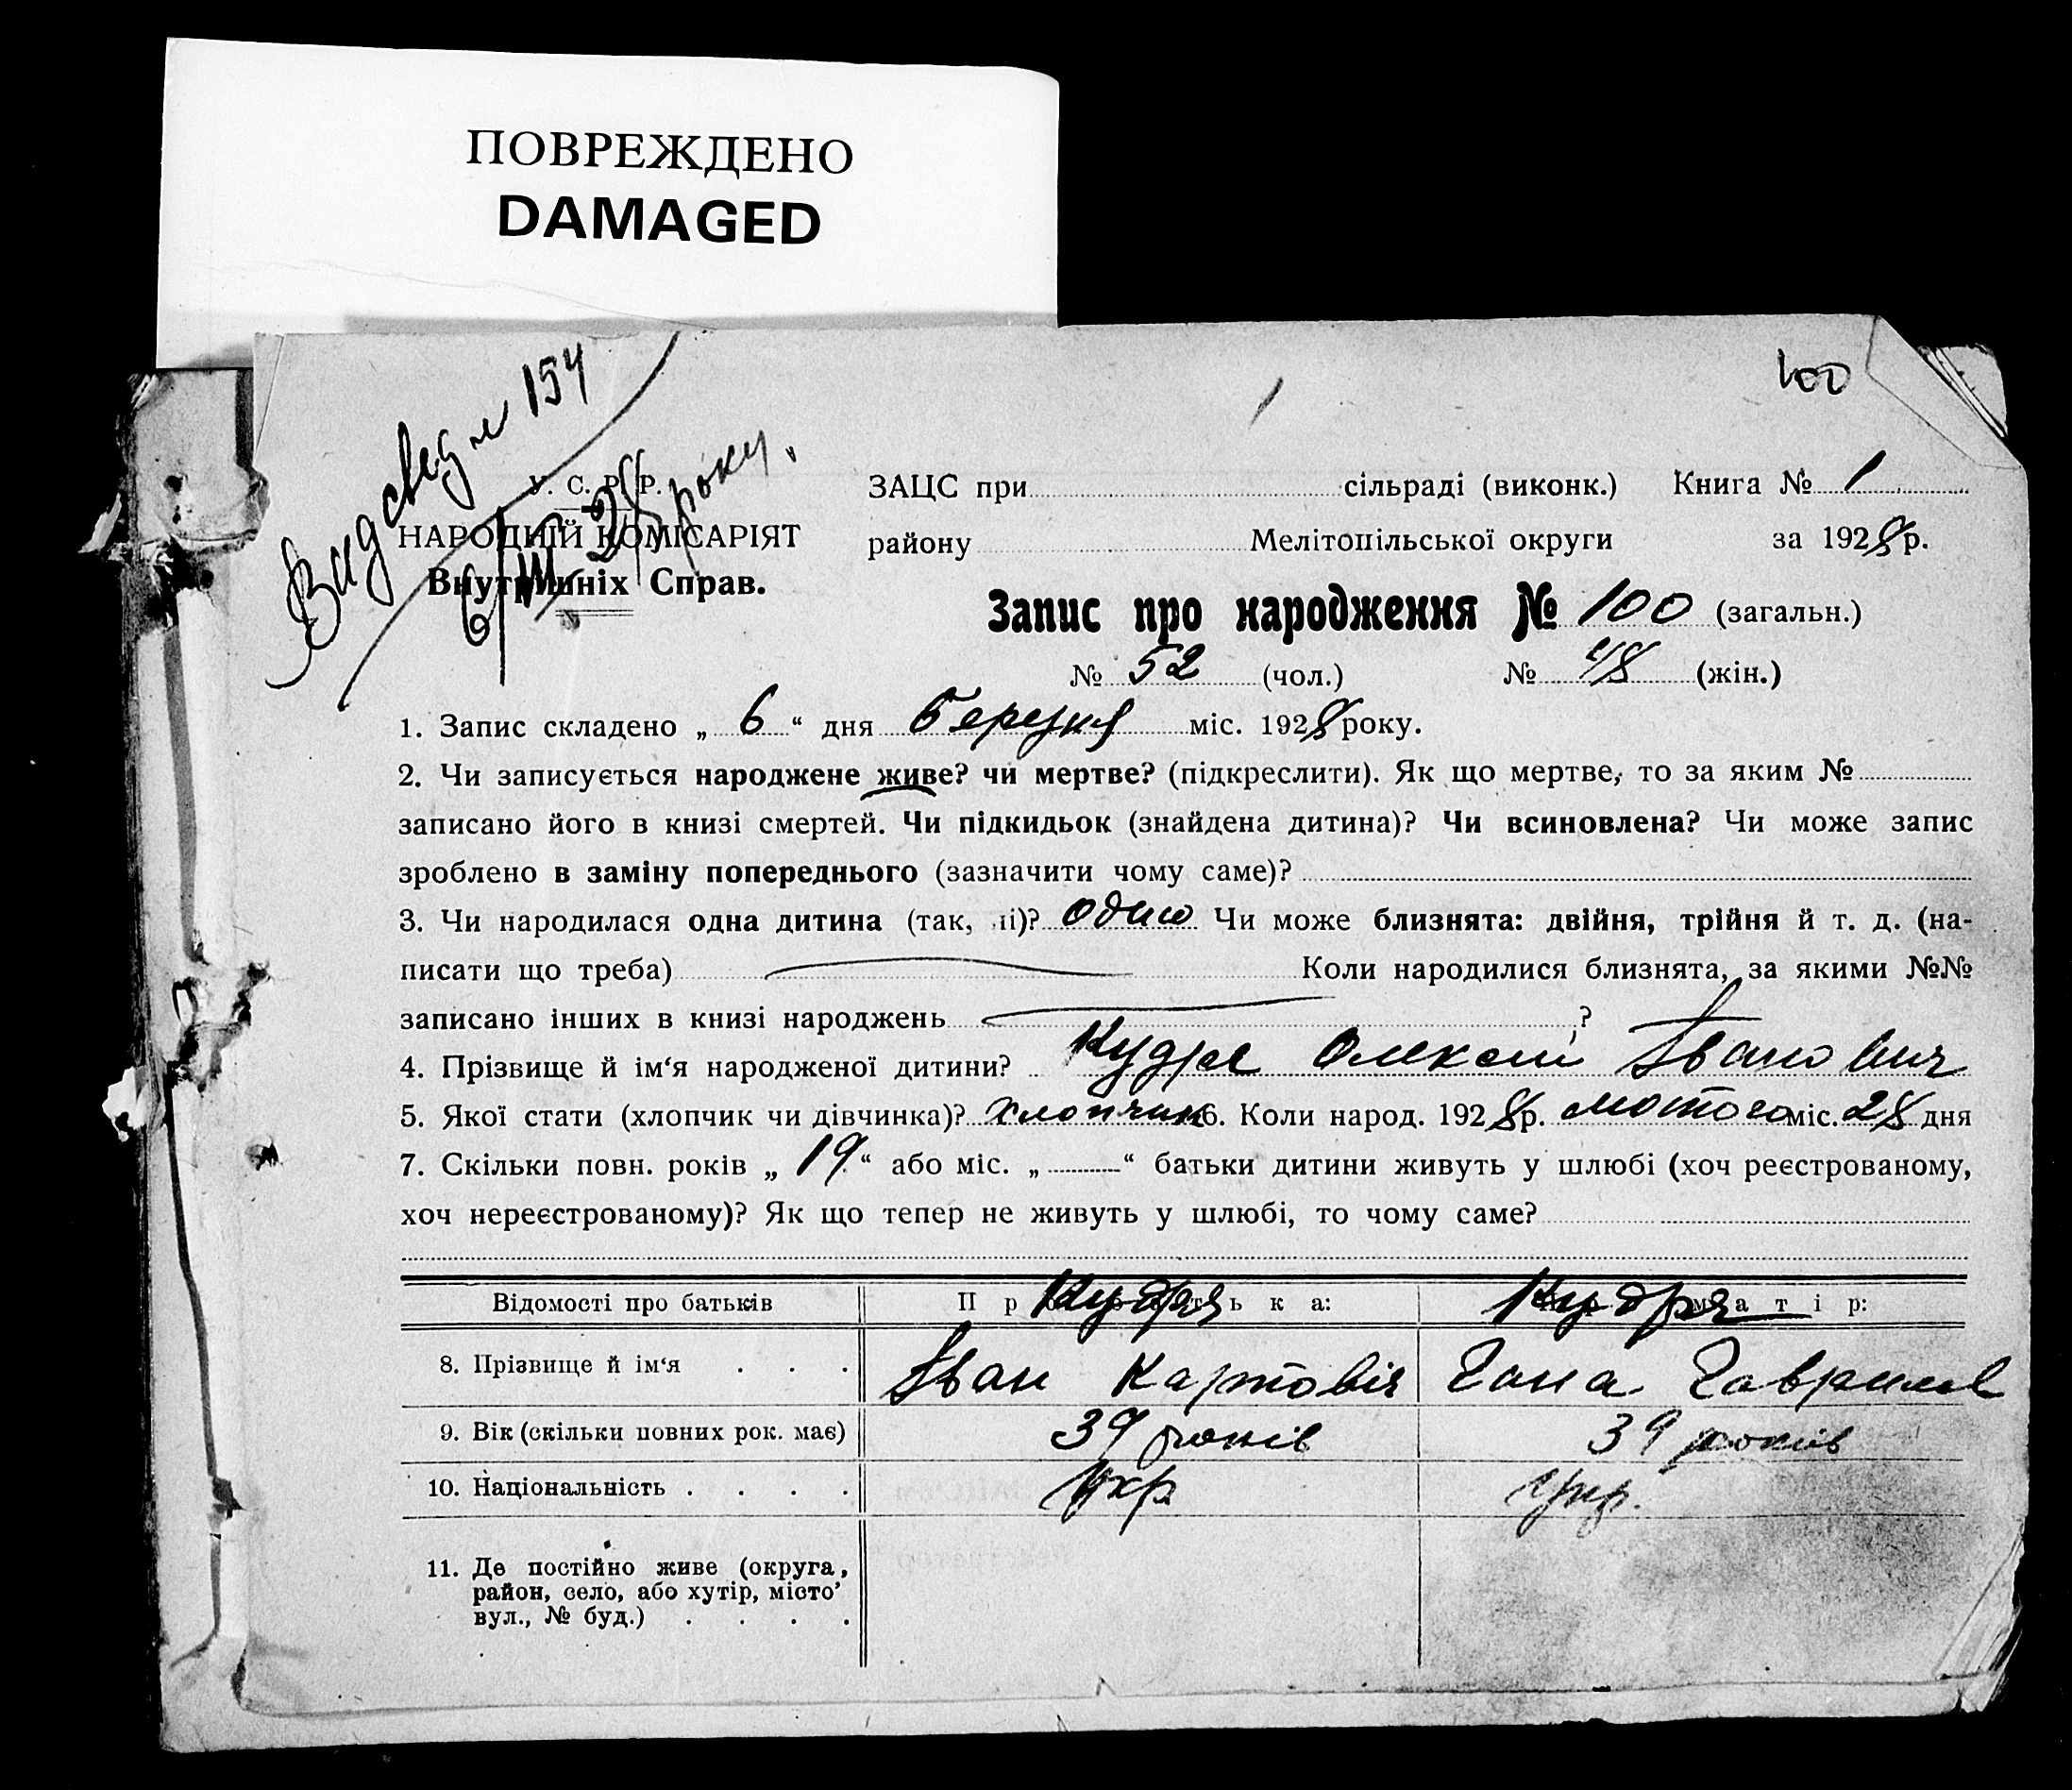 ПОВРЕЖДЕНО
DAMAGED
100
Видсвед № 154
6/III-28 року.
У. С. Р. Р.
НАРОДНІЙ КОМІСАРІЯТ
Внутрішніх Справ.
ЗАЦС при сільраді (виконк.) Книга № 1
району Мелітопільської округи за 1928 р.
Запис про народження № 100 (загальн.)
№ 52 (чол.) № 48 (жін.)
1. Запис складено „ 6 “ дня березня міс. 1928 року.
2. Чи записується народжене живе? чи мертве? (підкреслити). Як що мертве, то за яким №
записано його в книзі смертей. Чи підкидьок (знайдена дитина)? Чи всиновлена? Чи може запис
зроблено в заміну попереднього (зазначити чому саме)?
3. Чи народилася одна дитина (так, ні)? одно Чи може близнята: двійня, трійня й т. д. (на-
писати що треба) Коли народилися близнята, за якими №№
записано інших в книзі народжень ?
4. Прізвище й ім‘я народженої дитини? Кудря Олексій Іванович
5. Якої стати (хлопчик чи дівчинка)? хлопчик 6. Коли народ. 1928 р. лютого міс. 28 дня
7. Скільки повн. років „ 19 “ або міс. „ “ батьки дитини живуть у шлюбі (хоч реєстрованому,
хоч нереєстрованому)? Як що тепер не живуть у шлюбі, то чому саме?
Відомості про батьків Про батька: Кудря Про матір: Кудря
8. Прізвище й ім‘я . . . Іван Карпович Гана Гаврилов
9. Вік (скільки повних рок. має) 39 років 39 років
10. Національність . . . . Укр Укр.
11. Де постійно живе (округа,
район, село, або хутір, місто’
вул., № буд.) . . . .